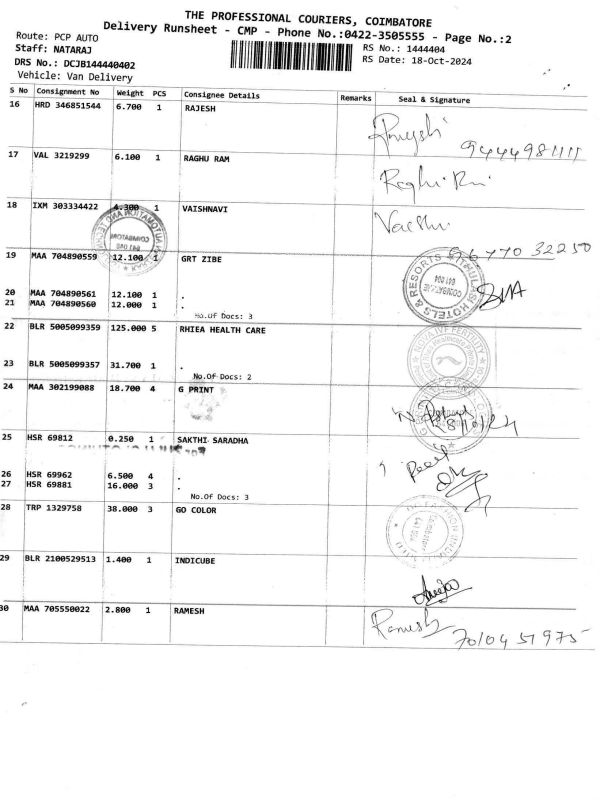 THE PROFESSIONAL COURIERS, COIMBATORE
Delivery Runsheet - CMP - Phone No.:0422-3505555 - Page No.:2
Route: PCP AUTO
RS No.: 1444404
Staff: NATARAJ
RS Date: 18-Oct-2024
DRS No.: DCJB144440402
Vehicle: Van Delivery
S No Consignment No Weight PCS Consignee Details Remarks Seal & Signature
16 HRD 346851544 6.700 1 RAJESH
9444981111
17 VAL 3219299 6.100 1 RAGHU RAM
Raghu Ram
18 IXM 303334422 4.300 1 VAISHNAVI
Vaishu
9677032250
19 MAA 704890559 12.100 1 GRT ZIBE
20 MAA 704890561 12.100 1 .
21 MAA 704890560 12.000 1 .
No.Of Docs: 3
22 BLR 5005099359 125.000 5 RHIEA HEALTH CARE
23 BLR 5005099357 31.700 1 .
No.Of Docs: 2
24 MAA 302199088 18.700 4 G PRINT
18/10/24
25 HSR 69812 0.250 1 SAKTHI SARADHA
26 HSR 69962 6.500 4 .
27 HSR 69881 16.000 3 .
No.Of Docs: 3
28 TRP 1329758 38.000 3 GO COLOR
29 BLR 2100529513 1.400 1 INDICUBE
30 MAA 705550022 2.800 1 RAMESH
Ramesh
7010451975